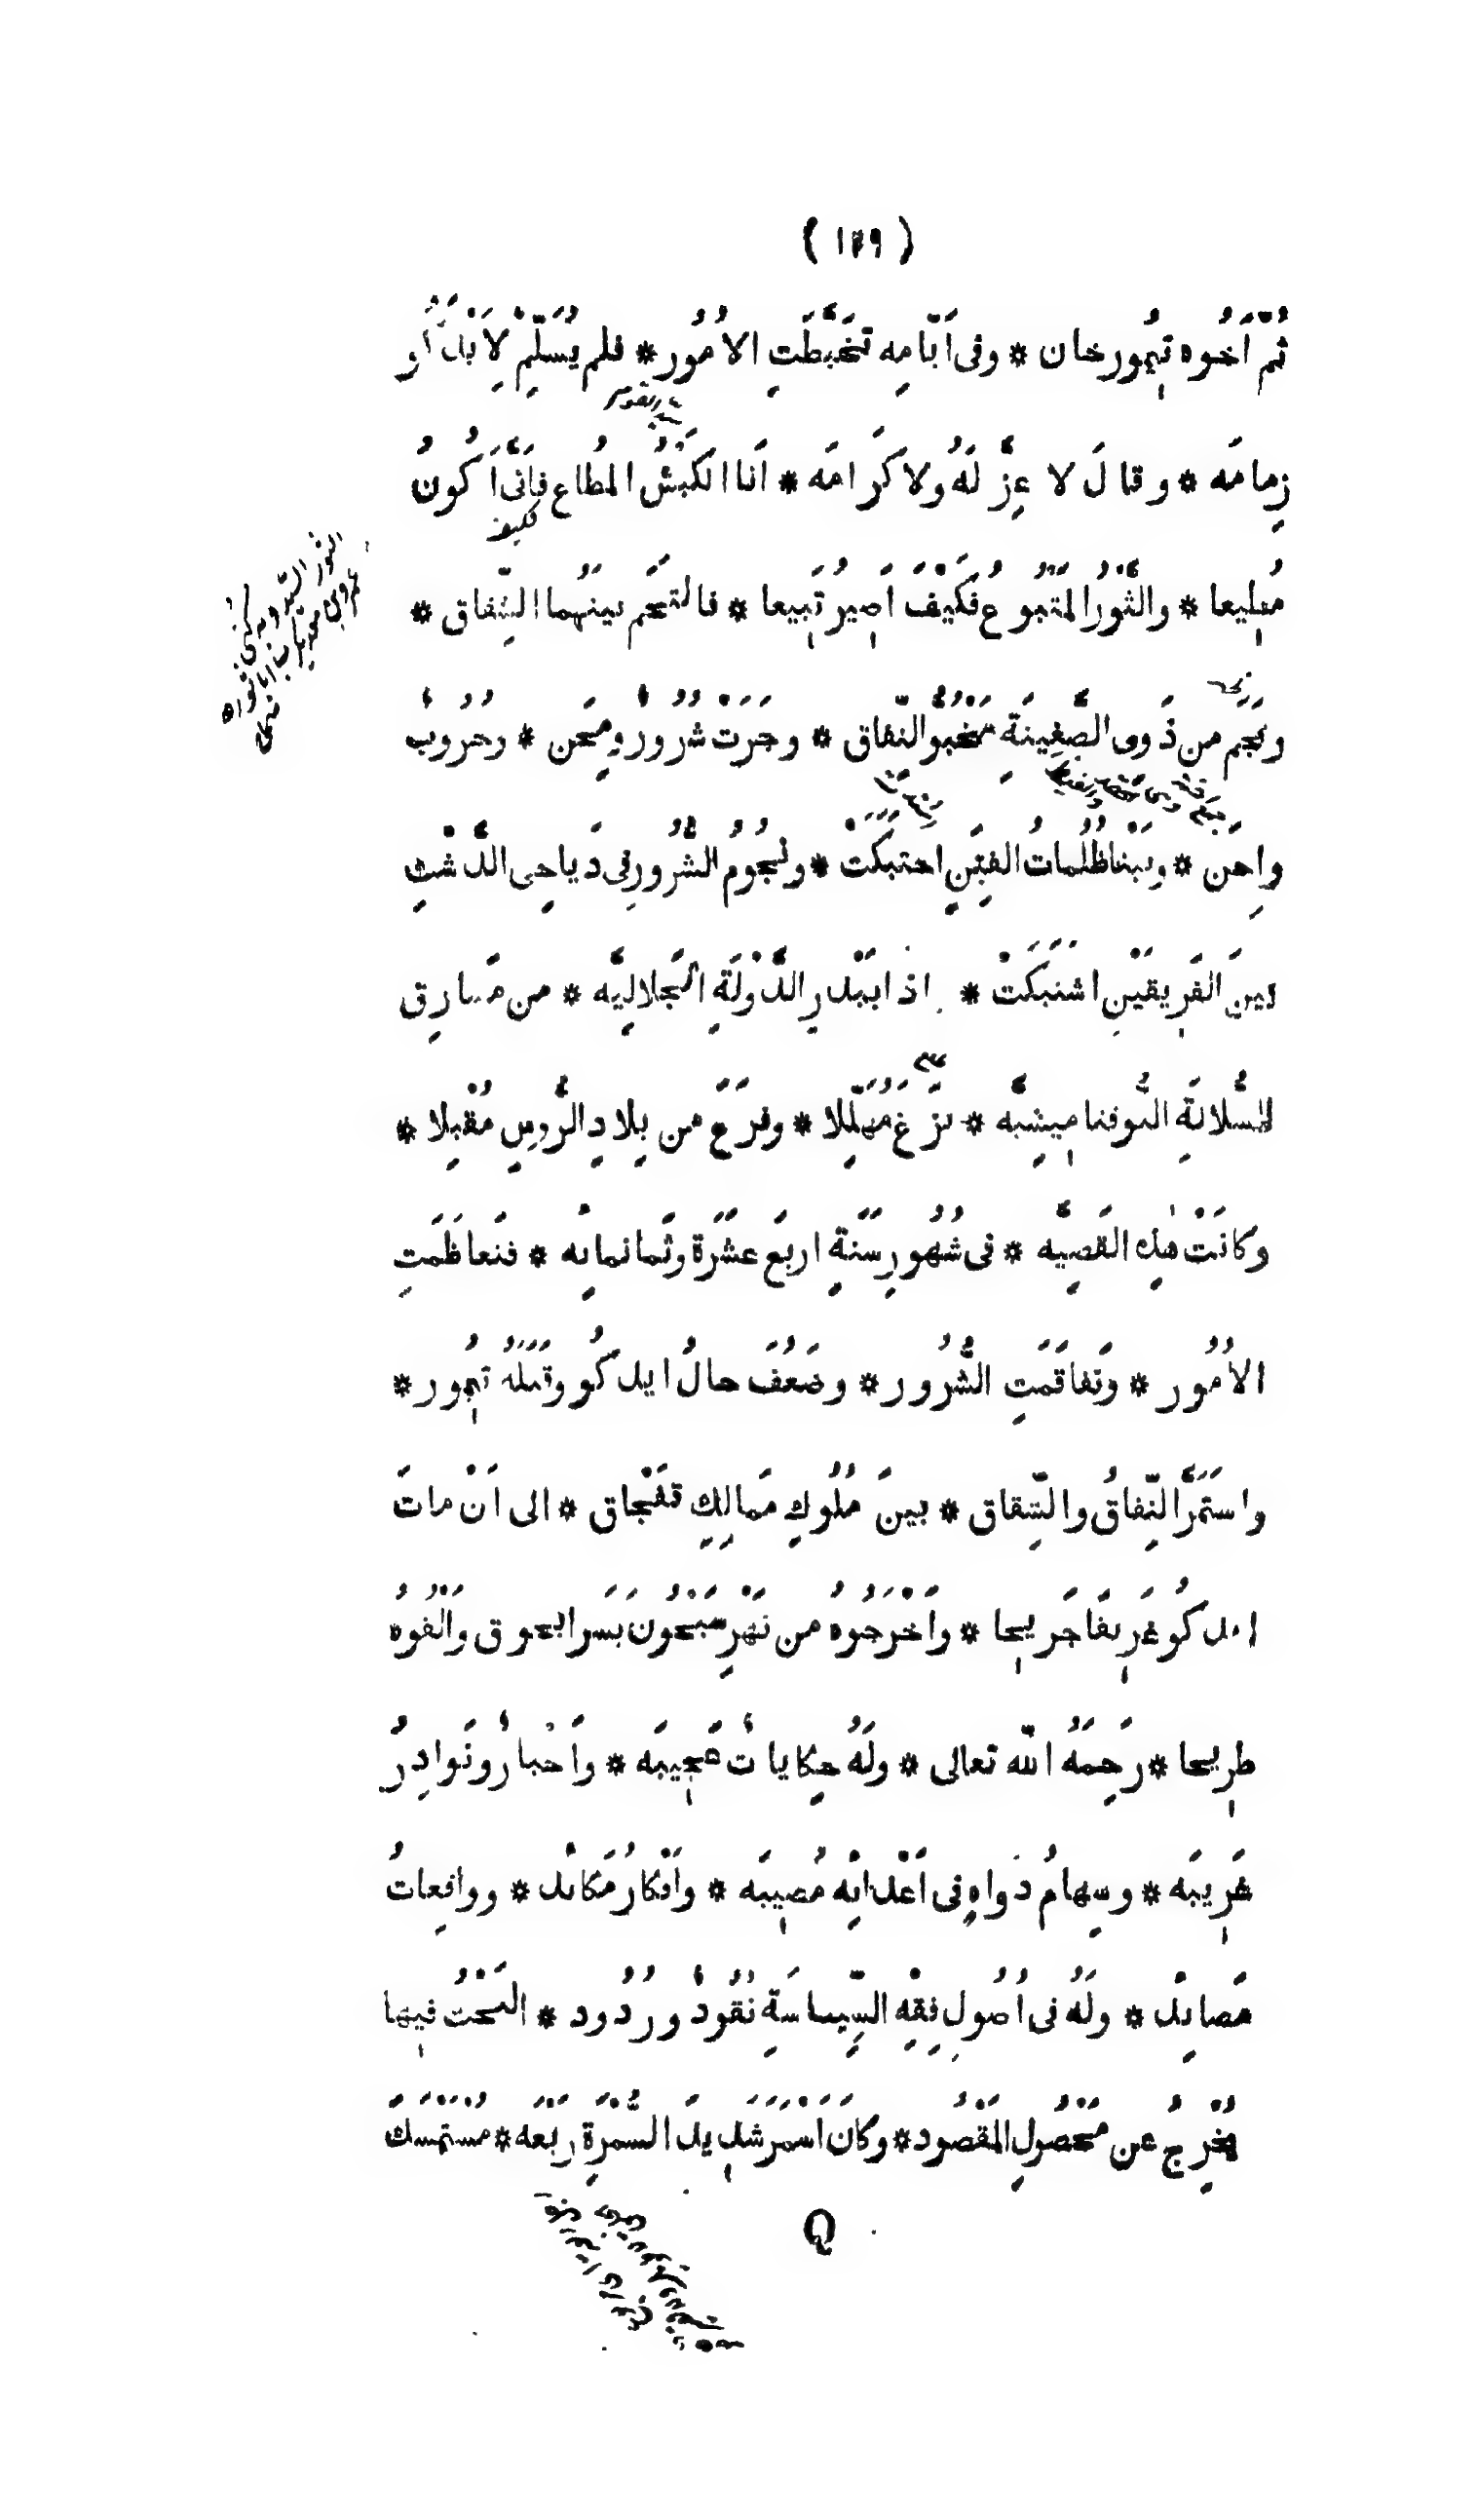 ( ١٢٩ )
ثُمَّ اَخُوه تِيْمُور خان * وفى اَيّامِه تَخَبَّطَتِ الاُمُور * فلم يُسَلِّمْ لِاَيْدَكُو
زِمامَه * وقالَ لا عِزَّ لَهُ ولا كَرامَه * اَنا الكَبْشُ المُطاع فاِنّى اَكُونُ
مُطِيعا * والثَّوْرُ المَتْبُوعُ فكَيْفَ اَصِيرُ تَبِيعا * فالتَحَم بينَهُما الشِّقاق *
ونَجَم من ذَوى الضَّغِينَةِ مَخْبُوُّ النِّفاق * وجَرَتْ شُرُورٌ ومِحَن * وحُرُوبٌ
واِحَن * وبينا ظُلُماتُ الفِتَنِ احتبَكَتْ * ونُجُومُ الشُّرُورِ فى دَياجِى الدَّشْتِ
بينَ الفَرِيقَيْنِ اشتَبَكَتْ * اذا ببَدْرِ الدَّوْلَةِ الجَلالِيَّه * من مَشارِق
السُّلالَةِ التُّوقتامِيشِيَّه * بَزَغَ مُتَهَلِّلا * وفرَعَ من بِلادِ الرُّوسِ مُقْبِلا *
وكانَتْ هٰذِه القَضِيَّه * فى شُهُورِ سَنَةِ اربَعَ عشَرَة وثَمانمائِه * فتَعاظَمَتِ
الاُمُور * وتَفاقَمَتِ الشُّرُور * وضَعُفَ حالُ ايدكُو وقتَلَهُ تِيمُور *
واستَمَرَّ النِّفاقُ والشِّقاق * بينَ مُلُوكِ مَمالِكِ قفْجاق * الى اَنْ ماتَ
ايدكُو غَرِيقًا جَرِيحا * واَخْرَجُوهُ من نَهْرِ سَيْحُونَ بسَرايجوق واَلْقُوهُ
طرِيحا * رَحِمَهُ اللّه تعالى * ولَهُ حِكاياتٌ عَجِيبَه * واَخْبارٌ ونَوادِرُ
غَرِيبَه * وسِهامُ دَواهٍ فى اَعْدائِه مُصِيبَه * واَفْكارُ مَكائد * وواقِعاتُ
مَصائِد * ولَهُ فى اُصُولِ فِقْهِ السِّياسَةِ نُقُودٌ ورُدُود * البَحْثُ فيها
يُخْرِجُ عن مَحْصُولِ المَقْصُود * وكانَ اَسْمَرَ شَدِيدَ السُّمْرَةِ رَبْعَه * مُسْتَمْسِكَ
Q